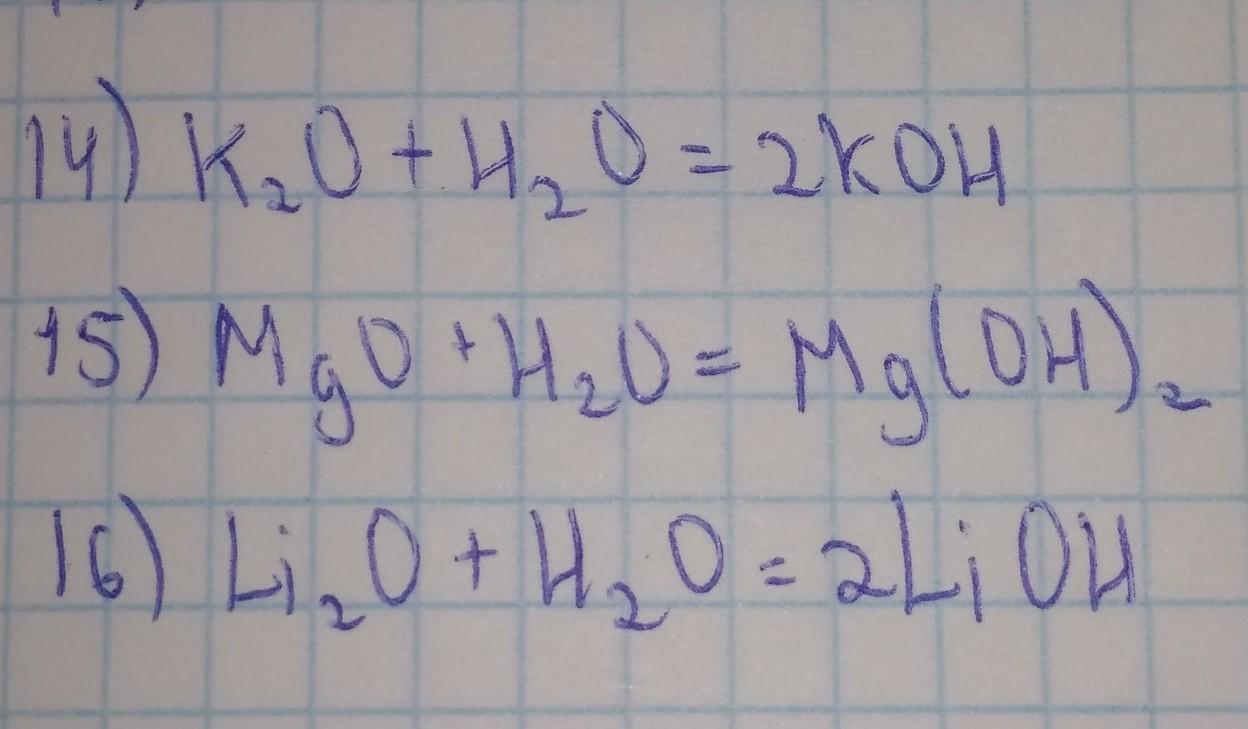 14) K₂O + H₂O = 2KOH
15) MgO + H₂O = Mg(OH)₂
16) Li₂O + H₂O = 2LiOH